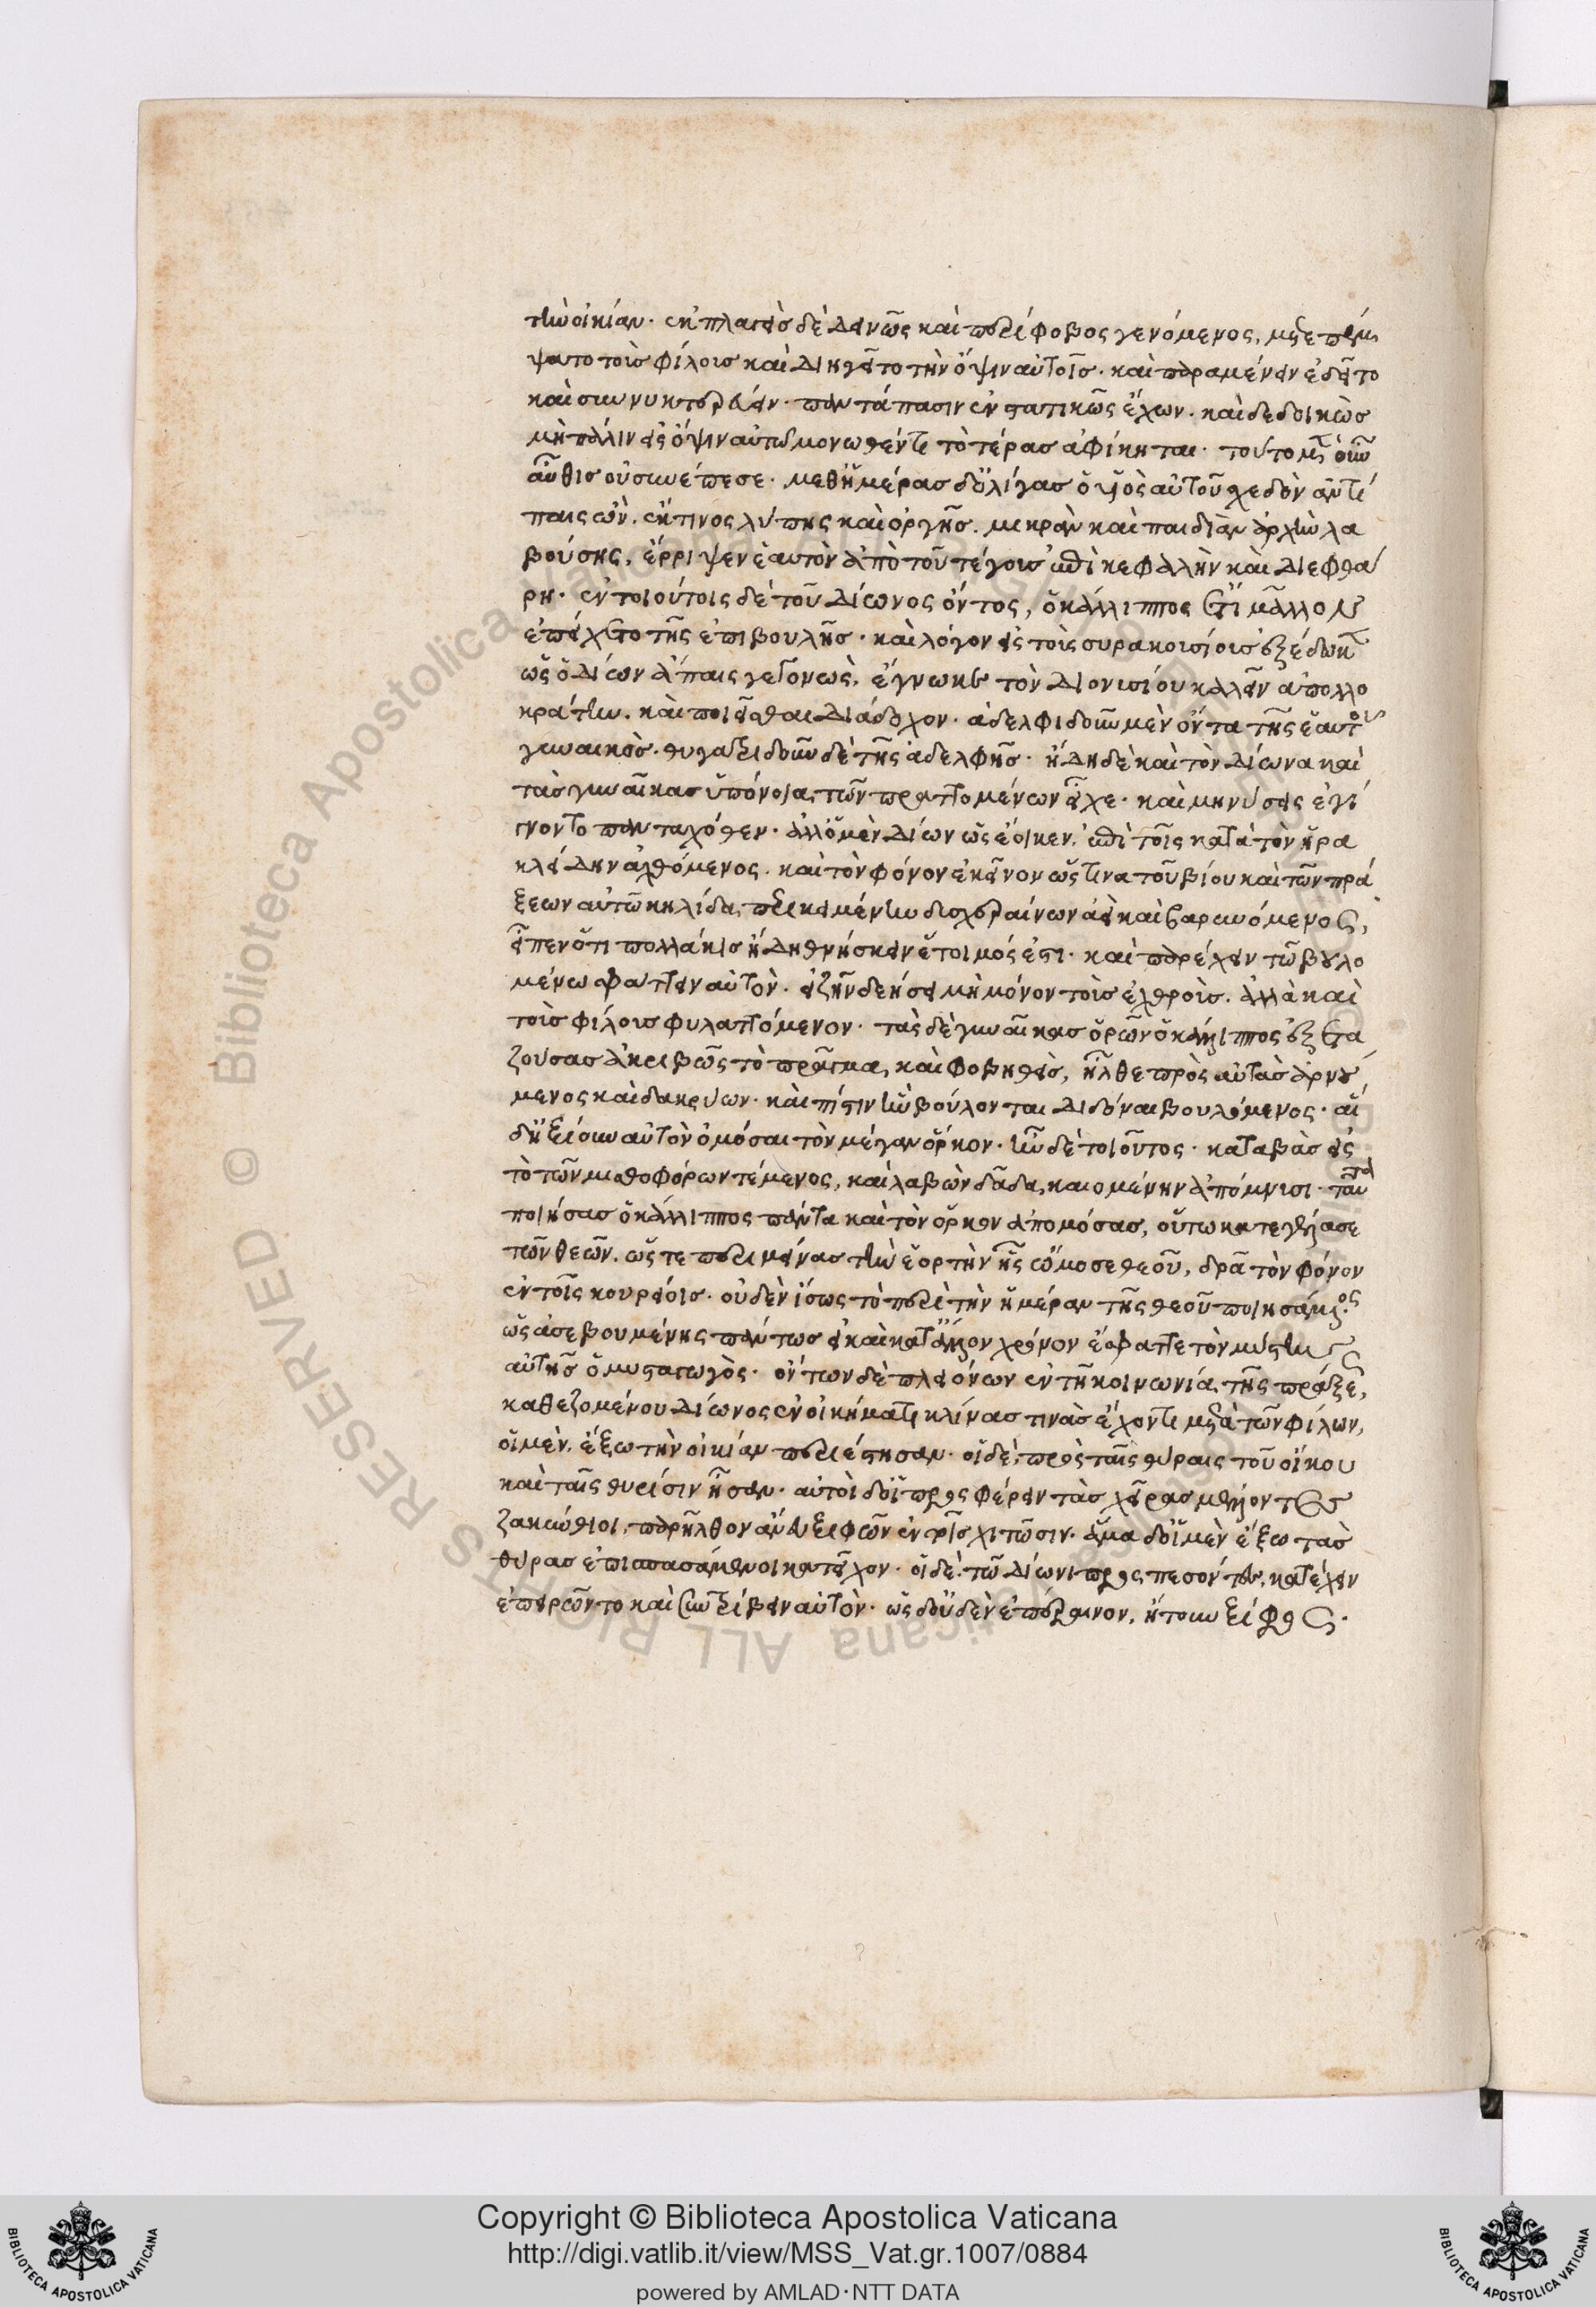 τὴν οἰκίαν. ἐκπλαγεὶς δὲ δεινῶς καὶ περίφοβος γενόμενος, μετεπέμ
ψατο τοὺς φίλους καὶ διηγεῖτο τὴν ὄψιν αὐτοῖς. καὶ παραμένειν ἐδεῖτο
καὶ συννυκτερεύειν. παντάπασιν ἐκστατικῶς ἔχων. καὶ δεδοικὼς
μὴ πάλιν εἰς ὄψιν αὐτῷ μονωθέντι τὸ τέρας ἀφίκηται. τοῦτο μὲν οὖν
αὖθις οὐ συνέπεσε. μεθ' ἡμέρας δ' ὀλίγας ὁ υἱὸς αὐτοῦ σχεδὸν ἀντί
παις ὢν. ἔκ τινος λύπης καὶ ὀργῆς. μικρὰν καὶ παιδιὰν ἀρχὴν λα
βούσης, ἔρριψεν ἑαυτὸν ἀπὸ τοῦ τέγους ἐπὶ κεφαλὴν καὶ διεφθά
ρη. ἐν τοιούτοις δὲ τοῦ Δίωνος ὄντος, ὁ κάλλιππος ἔτι μᾶλλον
ἐπείχετο τῆς ἐπιβουλῆς. καὶ λόγον εἰς τοὺς συρακουσίους ἐξέδωκεν
ὡς ὁ Δίων ἄπαις γεγονὼς, ἔγνωκε τὸν Διονυσίου καλεῖν ἀπολλο
κράτην. καὶ ποιεῖσθαι διάδοχον. ἀδελφιδοῦν μὲν ὄντα τῆς ἑαυτοῦ
γυναικὸς. θυγατριδοῦν δὲ τῆς ἀδελφῆς. ἤδη δὲ καὶ τὸν Δίωνα καὶ
τὰς γυναῖκας ὑπόνοια τῶν πραττομένων εἶχε. καὶ μηνύσεις ἐγί
γνοντο πανταχόθεν. ἀλλ' ὁ μὲν Δίων ὡς ἔοικεν, ἐπὶ τοῖς κατὰ τὸν ἡρα
κλείδην ἀχθόμενος. καὶ τὸν φόνον ἐκεῖνον ὥς τινα τοῦ βίου καὶ τῶν πρά
ξεων αὐτῷ κηλίδα, περικειμένην δυσχεραίνων ἀεὶ καὶ βαρυνόμενος,
εἶπεν ὅτι πολλάκις ἤδη θνήσκειν ἕτοιμός ἐστι. καὶ παρέχειν τῷ βουλο
μένῳ σφάττειν αὐτὸν. εἰ ζῆν δεήσει μὴ μόνον τοὺς ἐχθροὺς. ἀλλὰ καὶ
τοὺς φίλους φυλαττόμενον. τὰς δὲ γυναῖκας ὁρῶν ὁ κάλλιππος ἐξετα
ζούσας ἀκριβῶς τὸ πρᾶγμα, καὶ φοβηθεὶς, ἦλθε πρὸς αὐτὰς ἀρνού
μενος καὶ δακρύων. καὶ πίστιν ἣν βούλονται διδόναι βουλόμενος. αἱ
δ' ἠξίουν αὐτὸν ὀμόσαι τὸν μέγαν ὅρκον. ἦν δὲ τοιοῦτος. καταβὰς εἰς
τὸ τῶν μισθοφόρων τέμενος, καὶ λαβὼν δᾷδα, καιομένην ἀπόμνυσι. ταῦτα
ποιήσας ὁ κάλλιππος πάντα καὶ τὸν ὅρκον ἀπομόσας, οὕτω κατεγέλασε
τῶν θεῶν. ὥστε περιμείνας τὴν ἑορτὴν ἧς ὤμοσε θεοῦ, δρᾷ τὸν φόνον
ἐν τοῖς κουρείοις. οὐδὲν ἴσως τὸ περὶ τὴν ἡμέραν τῆς θεοῦ ποιησάμενος
ὡς ἀσεβουμένης πάντως εἰ καὶ κατ' ἄλλον χρόνον ἔσφαττε τὸν μύστην
αὐτῆς ὁ μυσταγωγὸς. ὄντων δὲ πλειόνων ἐν τῇ κοινωνίᾳ τῆς πράξεως,
καθεζομένου Δίωνος ἐν οἰκήματι κλίνας τινὰς ἔχοντι μετὰ τῶν φίλων,
οἱ μὲν, ἔξω τὴν οἰκίαν περιέστησαν. οἱ δὲ, πρὸς ταῖς θύραις τοῦ οἴκου
καὶ ταῖς θυρίσιν ἦσαν. αὐτοὶ δ' οἱ προσφέρειν τὰς χεῖρας μέλλοντες
ζακύνθιοι, παρῆλθον ἄνευ ξιφῶν ἐν τοῖς χιτῶσιν. ἅμα δ' οἱ μὲν ἔξω τὰς
θύρας ἐπισπασάμενοι κατεῖχον. οἱ δὲ τῷ Δίωνι προσπεσόντες, κατέχειν
ἐπειρῶντο καὶ συντρίβειν αὐτὸν. ὡς δ' οὐδὲν ἐπέραινον, ᾔτουν ξίφος.